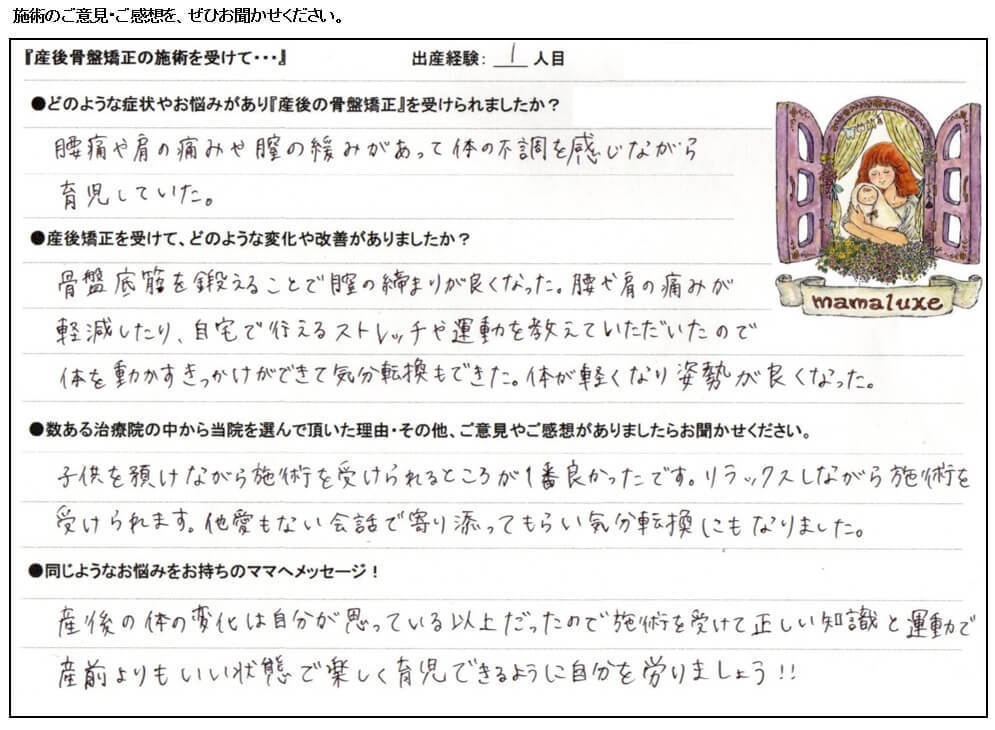 施術のご意見・ご感想を、ぜひお聞かせください。
『産後骨盤矯正の施術を受けて・・・』 出産経験: 1 人目
●どのような症状やお悩みがあり『産後の骨盤矯正』を受けられましたか？
腰痛や肩の痛みや膣の緩みがあって体の不調を感じながら
育児していた。
●産後矯正を受けて、どのような変化や改善がありましたか？
骨盤底筋を鍛えることで膣の締まりが良くなった。腰や肩の痛みが
軽減したり、自宅で行えるストレッチや運動を教えていただいたので
体を動かすきっかけができて気分転換もできた。体が軽くなり姿勢が良くなった。
mamaluxe
●数ある治療院の中から当院を選んで頂いた理由・その他、ご意見やご感想がありましたらお聞かせください。
子供を預けながら施術を受けられるところが1番良かったです。リラックスしながら施術を
受けられます。他愛もない会話で寄り添ってもらい気分転換にもなりました。
●同じようなお悩みをお持ちのママへメッセージ！
産後の体の変化は自分が思っている以上だったので施術を受けて正しい知識と運動で
産前よりもいい状態で楽しく育児できるように自分を労りましょう!!